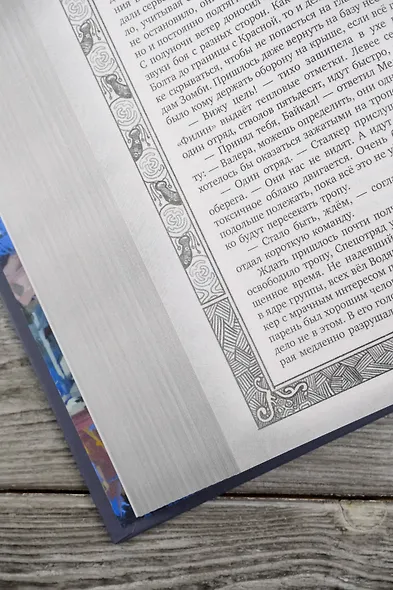 дали серва
ло, учитывая
не остановило, он
но и постоянно подтяг
С полуночи ветер доноси
звуки боя с разных сторон. Как
Болта до границы с Красной, то и д
ке скрываться, чтобы не попасться на глаз
дам Зомби. Пришлось даже вернуть на базу не
было кому держать оборону на крыше, если всё
— Вижу цель! — тихо зашипела в ухо
«Филин» выдаёт тепловые отметки. Левее се
один отряд, стволов пятьдесят, идут быстро,
— Принял тебя, Байкал! — ответил Ме
— Валера, можешь определить, они оди
ту:
хотелось бы оказаться зажатыми на троп
— Один отряд. — Сталкер прислуш
оберега. — Они нас не видят. А идут
токсичное облако двигается. Очень б
подольше полежать, пока всё это не у
ко будут пересекать тропу.
— Стало быть, ждём, — соглас
отдал короткую команду.
Ждать пришлось почти пол
освободило тропу, Спецотряд у
шенное время. Не надевший
в ядре группы, всех вёл Водя
кер с мрачным интересом п
парень был хорошим челов
дело не в этом. В его голо
рая медленно разрушал